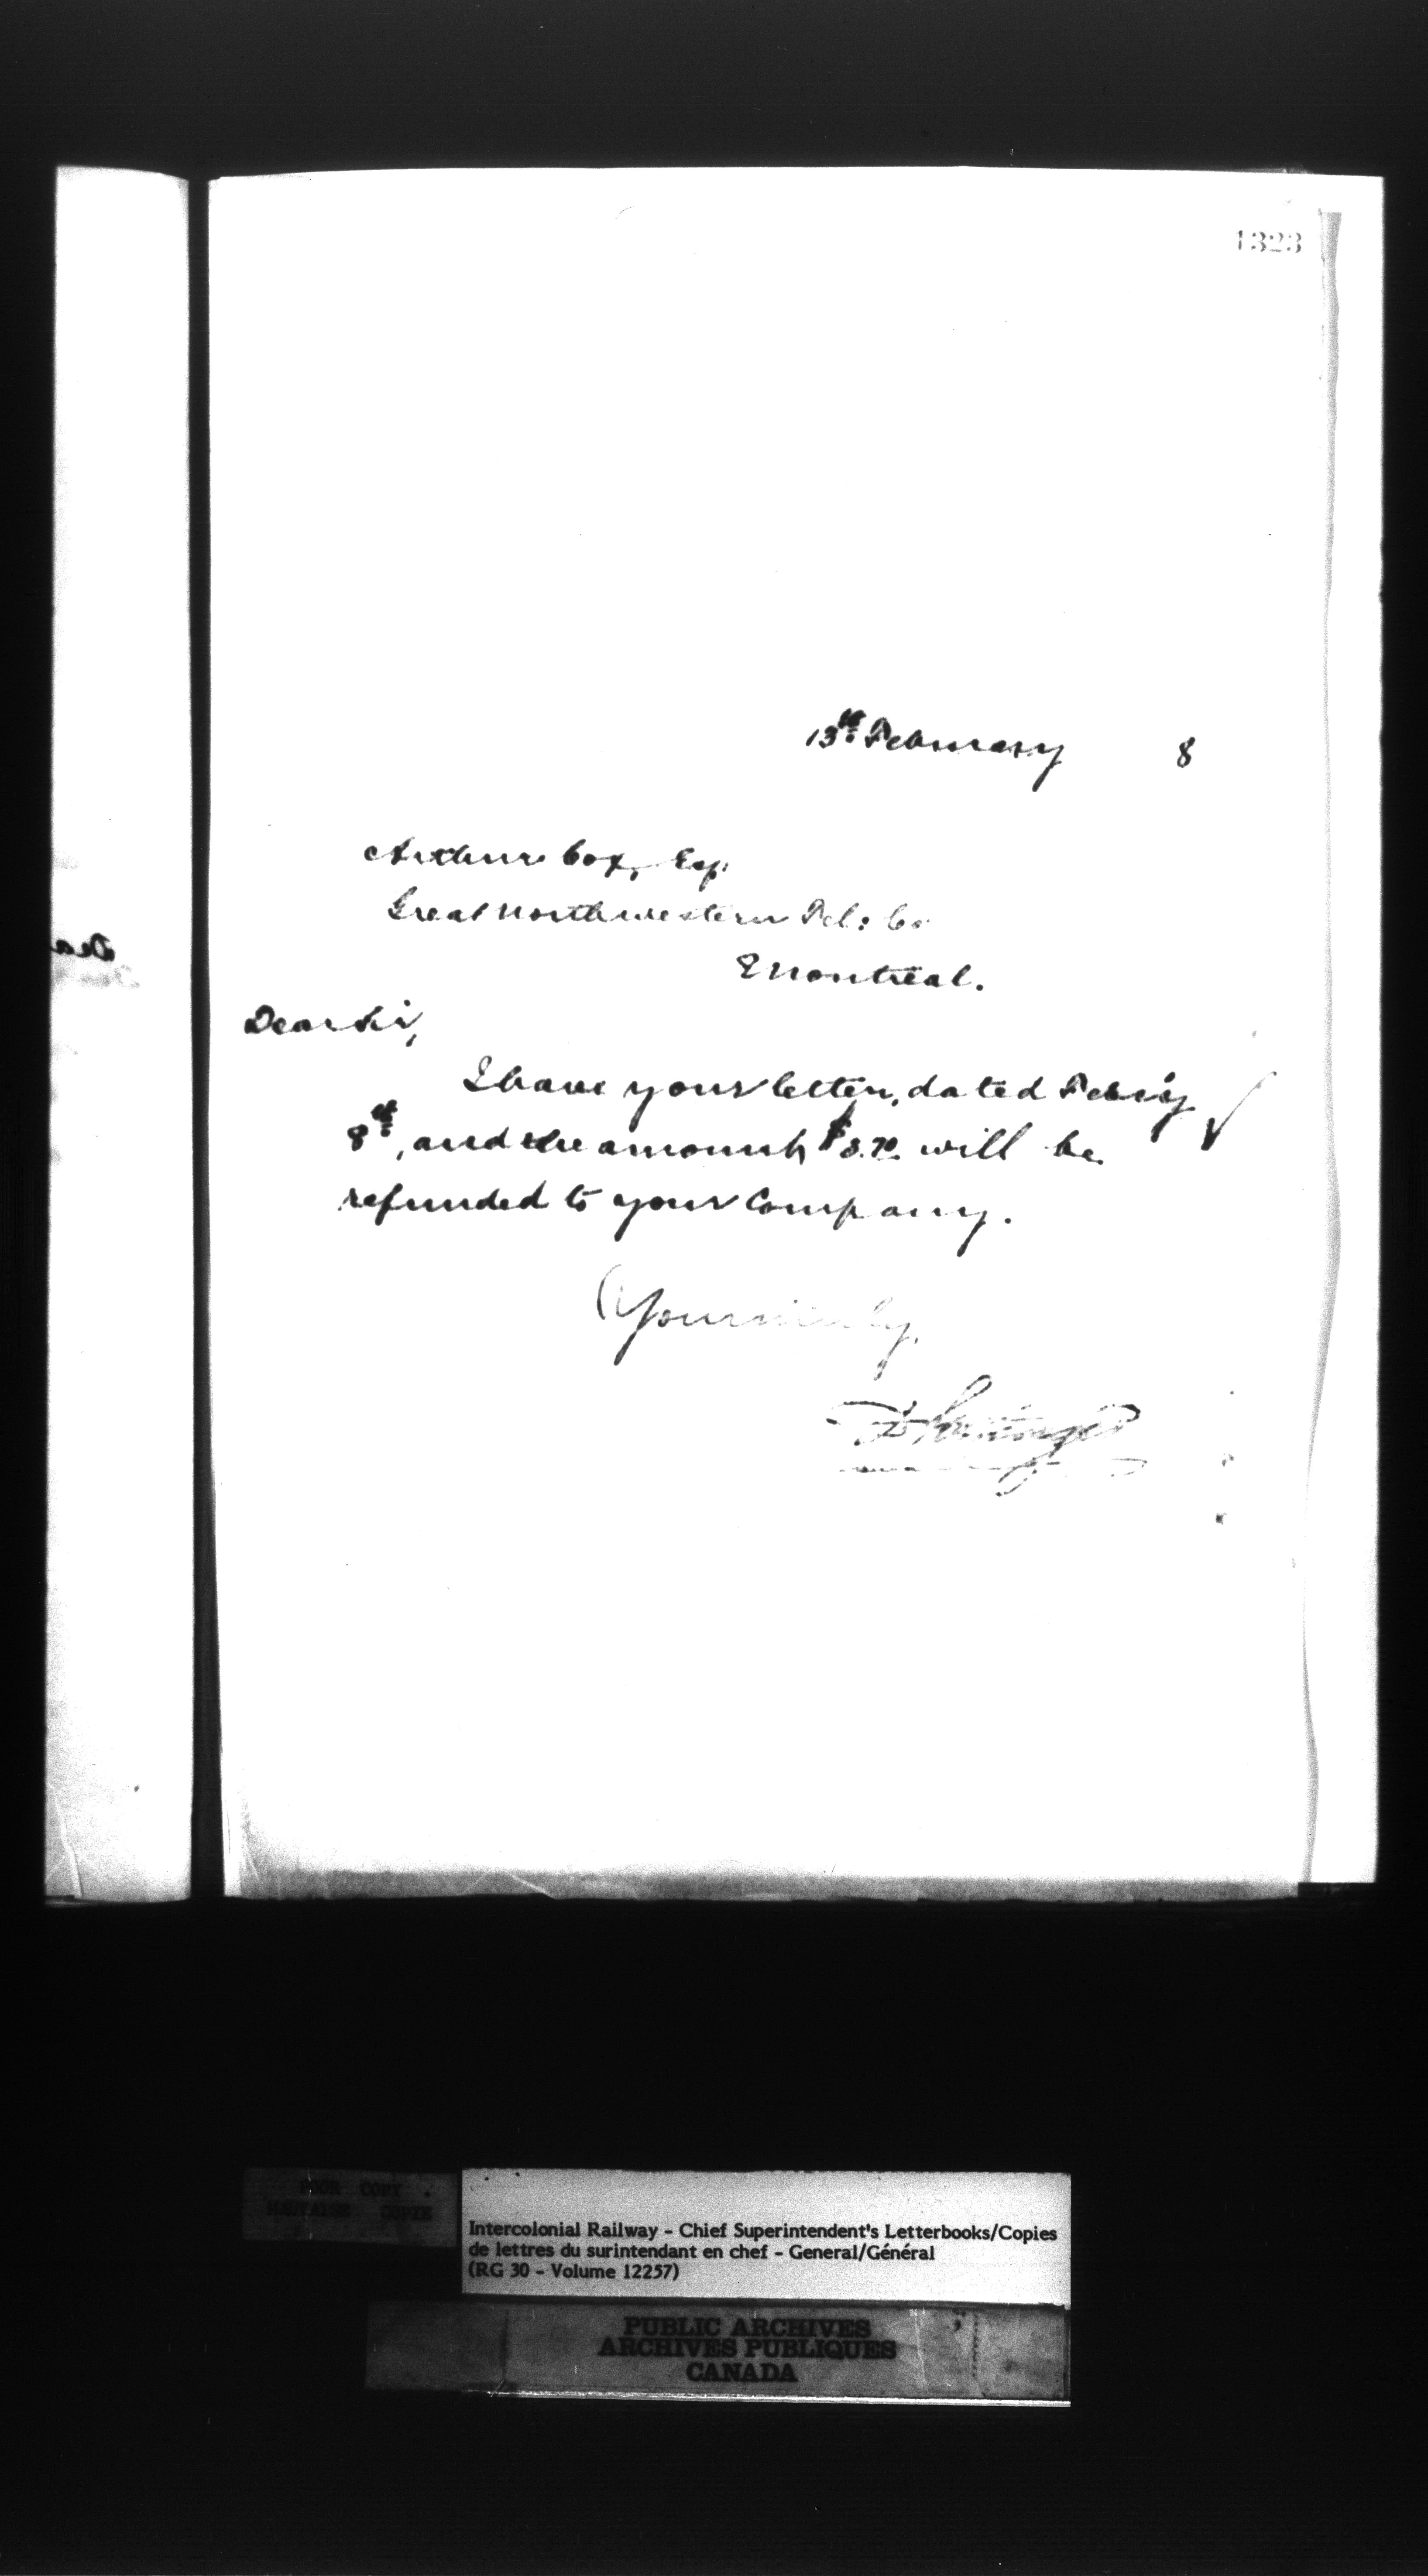 1323
13th February 8
Arthur Cox, Esq.
Great Northwestern Tel: Co.
Montreal.
Dear Sir,
I have your letter, dated Feb'y
8th, and the amount, $3.70 will be
refunded to your Company.
Yours truly,
D Pottinger
Dea
POOR COPY
MAUVAISE COPIE
Intercolonial Railway - Chief Superintendent's Letterbooks/Copies
de lettres du surintendant en chef - General/Général
(RG 30 - Volume 12257)
PUBLIC ARCHIVES
ARCHIVES PUBLIQUES
CANADA